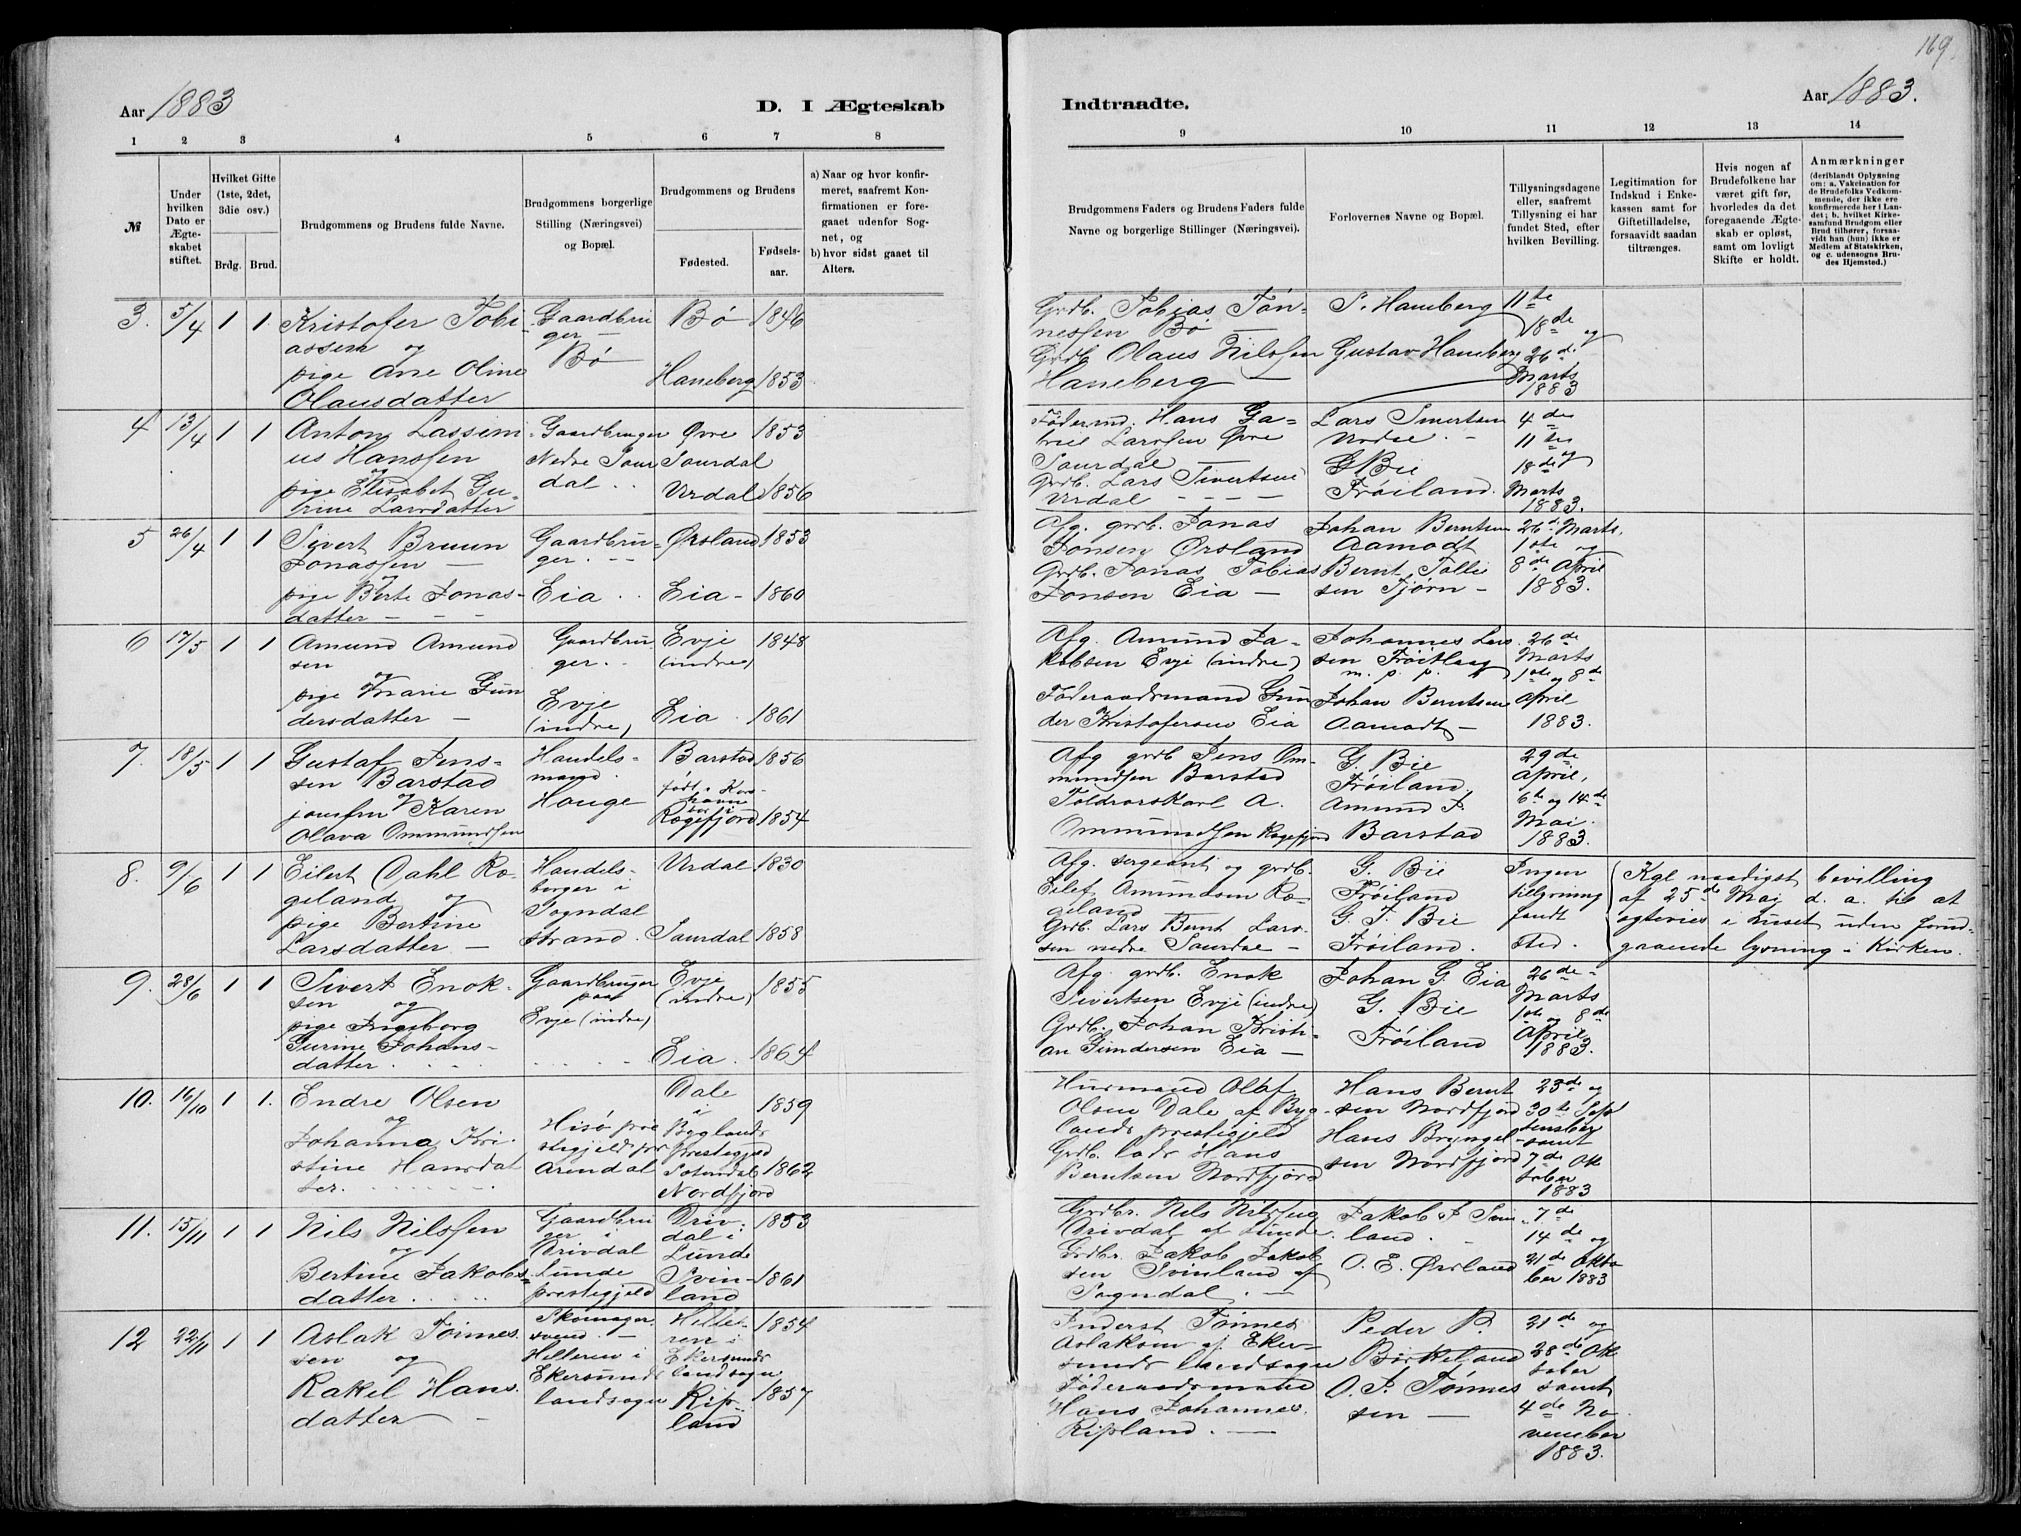 169.
Aar 1883
D. I Ægteskab
Indtraadte.
Aar 1883.
1 2 3 4 5 6 7 8
9 10 11 12 13 14
№
Under hvilken Dato er Ægteskabet stiftet.
Hvilket Gifte (1ste, 2det, 3die osv.)
Brdg. Brud.
Brudgommens og Brudens fulde Navne.
Brudgommens borgerlige Stilling (Næringsvei) og Bopæl.
Brudgommens og Brudens
Fødested.
Fødselsaar.
a) Naar og hvor konfirmeret, saafremt Konfirmationen er foregaaet udenfor Sognet, og
b) hvor sidst gaaet til Alters.
Brudgommens Faders og Brudens Faders fulde Navne og borgerlige Stillinger (Næringsvei).
Forlovernes Navne og Bopæl.
Tillysningsdagene eller, saafremt Tillysning ei har fundet Sted, efter hvilken Bevilling.
Legitimation for Indskud i Enkekassen samt for Giftetilladelse, forsaavidt saadan tiltrænges.
Hvis nogen af Brudefolkene har været gift før, hvorledes da det foregaaende Ægteskab er opløst, samt om lovligt Skifte er holdt.
Anmærkninger
(deriblandt Oplysning om: a. Vakcination for de Brudefolks Vedkommende, der ikke ere konfirmerede her i Landet; b. hvilket Kirkesamfund Brudgom eller Brud tilhører, forsaavidt han (hun) ikke er Medlem af Statskirken, og c. udensogns Brudes Hjemsted.)
3. 5/4 1 1.
Kristofer Tobi
assen og
pige Ane Oline
Olausdatter
Gaardbru
ger
Bø
Bø 1846
Haneberg 1853
Grdb. Tobias Tøn-
nessen Bø
Grdb Olaus Nilssen
Haneberg
S. Haneberg
Gustav Haneberg
11te
18de og
26d.
Marts
1883
4 13/4 1 1
Anton Lassen
ius Hanssen
og
pige Elisabet Gu-
rine Larsdatter
Gaardbruger
Nedre Saur
dal
Øvre 1853
Saurdal
Urdal 1856
Fødermd. Hans Ga-
briel Larssen Øvre
Saurdal
Grdb. Lars Sivertsen
Urdal
Lars Sivertsen
G Bie
Frøiland.
4de
11te
18de og
Marts
1883.
5 26/4 1 1
Sivert Bruun
Jonassen
og
pige Berte Jonas-
datter
Gaardbru-
ger.
Eia
Ørsland 1853
Eia 1860
Afg. grdb. Jonas
Jonsen Ørsland
Grdb. Jonas Tobias
Jonsen Eia
Johan Berntsen
Aamodt
Bernt Tolli
sen Tjørn
26d. Marts,
1ste og
8de April
1883.
6 17/5 1 1
Amund Amund
sen
og
pige Marie Gun
dersdatter
Gaardbru
ger.
Evje
(indre)
Evje 1848
(indre)
Eia. 1861
Afg. Amund Ja-
kobsen Evje (indre)
Føderaadsmand Gun
der Kristofersen Eia
Johannes Lars
sen Frøitlaag
m. p. p.
Johan Berntsen
Aamodt
26de
Marts
1ste og 8de
April
1883.
7. 18/5 1 1
Gustaf Jens-
sen Barstad
og
jomfru Karen
Olava Ommundsen
Handels-
mand.
Hauge
Barstad 1856
født i Kors
havn
bor i
Rægefjord 1854
Afg grdb Jens Om-
mundsen Barstad
Toldrorskarl A.
Ommundsen Rægefjord
G. Bie
Frøiland.
Amund J.
Barstad
29de
April,
6te og 14de
Mai.
1883.
8. 9/6 1 1
Eilert Dahl Ro-
geland og
pige Bertine
Larsdatter
Handels-
borger i
Sogndal
strand.
Urdal 1830
Saurdal 1858
Afg. sergeant og grdb.
Eilef Amundsen Ro-
geland
Grdb. Lars Bernt Lars-
sen nedre Saurdal
G. Bie
Frøiland
G. T. Bie
Frøiland.
Ingen
tillysning
fandt
sted.
Kgl naadigst bevilling
af 25de Maj d. a. til at
ægtevies i huset uden forud-
gaaende lysning i Kirken.
9. 28/6 1 1
Sivert Enok-
sen og
pige Ingeborg
Gurine Johans-
datter
Gaardbruger
paa
Evje (indre)
Evje 1855
(indre)
Eia. 1864
Afg. grdb. Enok
Sivertsen Evje (indre)
Grdb. Johan Kristi-
an Gundersen Eia
Johan G. Eia
G. Bie
Frøiland
26de
Marts
1ste og 8de
April
1883.
10. 16/10 1 1.
Endre Olsen
og
Johanna Kri-
stine Hansdat
ter.
Hisø præ
stegjeld for
Arendal
Dale 1859
i
Byglands
præstegjeld
1862
Nordfjord
Husmand Olaf
Olsen Dale af Byg-
lands præstegjeld
Grdb. lods Hans
Berntsen Nordfjord
Hans Bernt
sen Nordfjord
Hans Bryngel-
sen Nordfjord
23de og
30te Sep
tember
samt
7de Ok
tober
1883
11. 15/11 1 1
Nils Nilssen
og
Bertine Jakobs-
datter
Gaardbru
ger i
Drivdal
Lunde
præstegjeld
Driv- 1853
dal i
Lunde
Svin- 1861
land
Grdbr. Nils Nilssen
Drivdal af Lunde.
Grdbr. Jakob Jakob
sen Svinland af
Sogndal.
Jakob J Svin
land.
O. E. Ørsland
7de
14de og
21de Okto
ber 1883
12 22/11 1 1
Aslak Tønnes
sen og
Rakel Hans
datter
Skomager
svend.
Helleren i
Ekersunds
landsogn
Helle- 1854
ren i
Ekersunds
landsogn
Rips- 1857
land
Inderst Tønnes
Aslaksen af Eker-
sunds landsogn
Føderaadsmand
Hans Johannes.
Ripsland.
Peder P.
Birkeland
O. J. Tønnes
sen
21de og
28de Ok
tober
samt
4de No
vember
1883.